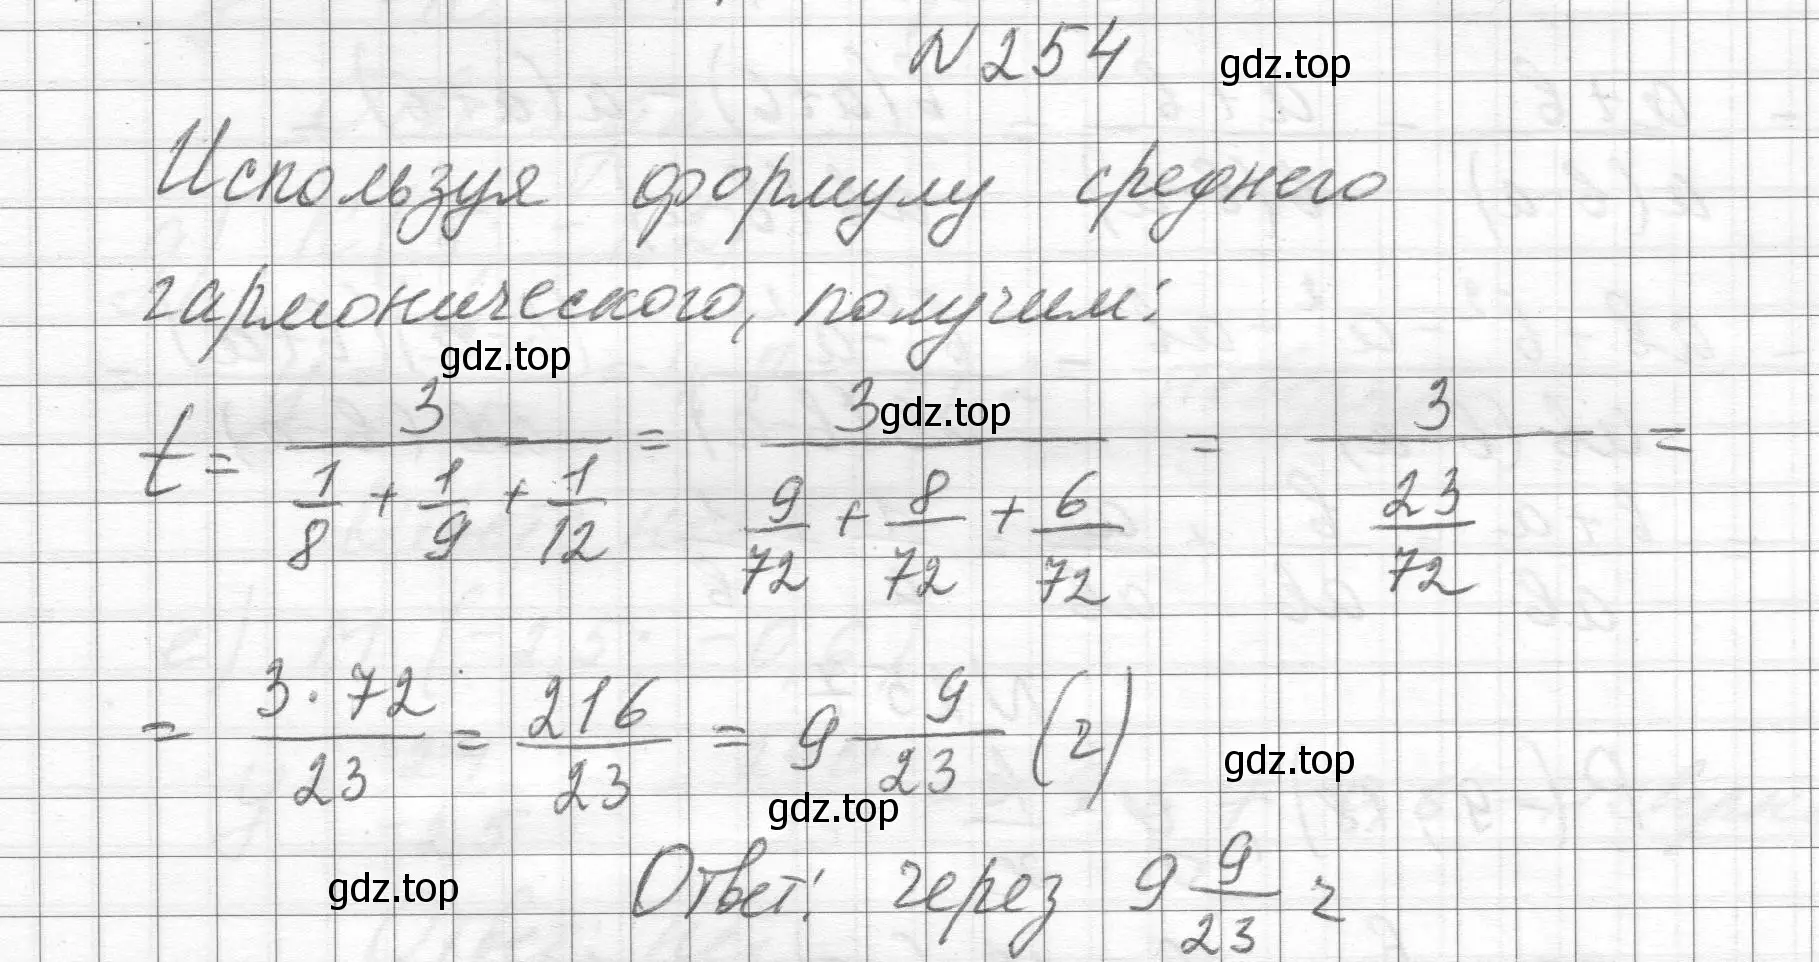 N254 gdz.top
Используя формулу среднего
гармонического, получим:
gdz.top
t = 3/(1/8 + 1/9 + 1/12) = 3/(9/72 + 8/72 + 6/72) = 3/(23/72) =
gdz.top
= 3·72/23 = 216/23 = 9 9/23 (г)
gdz.top
gdz.top
gdz.top Ответ: через 9 9/23 г